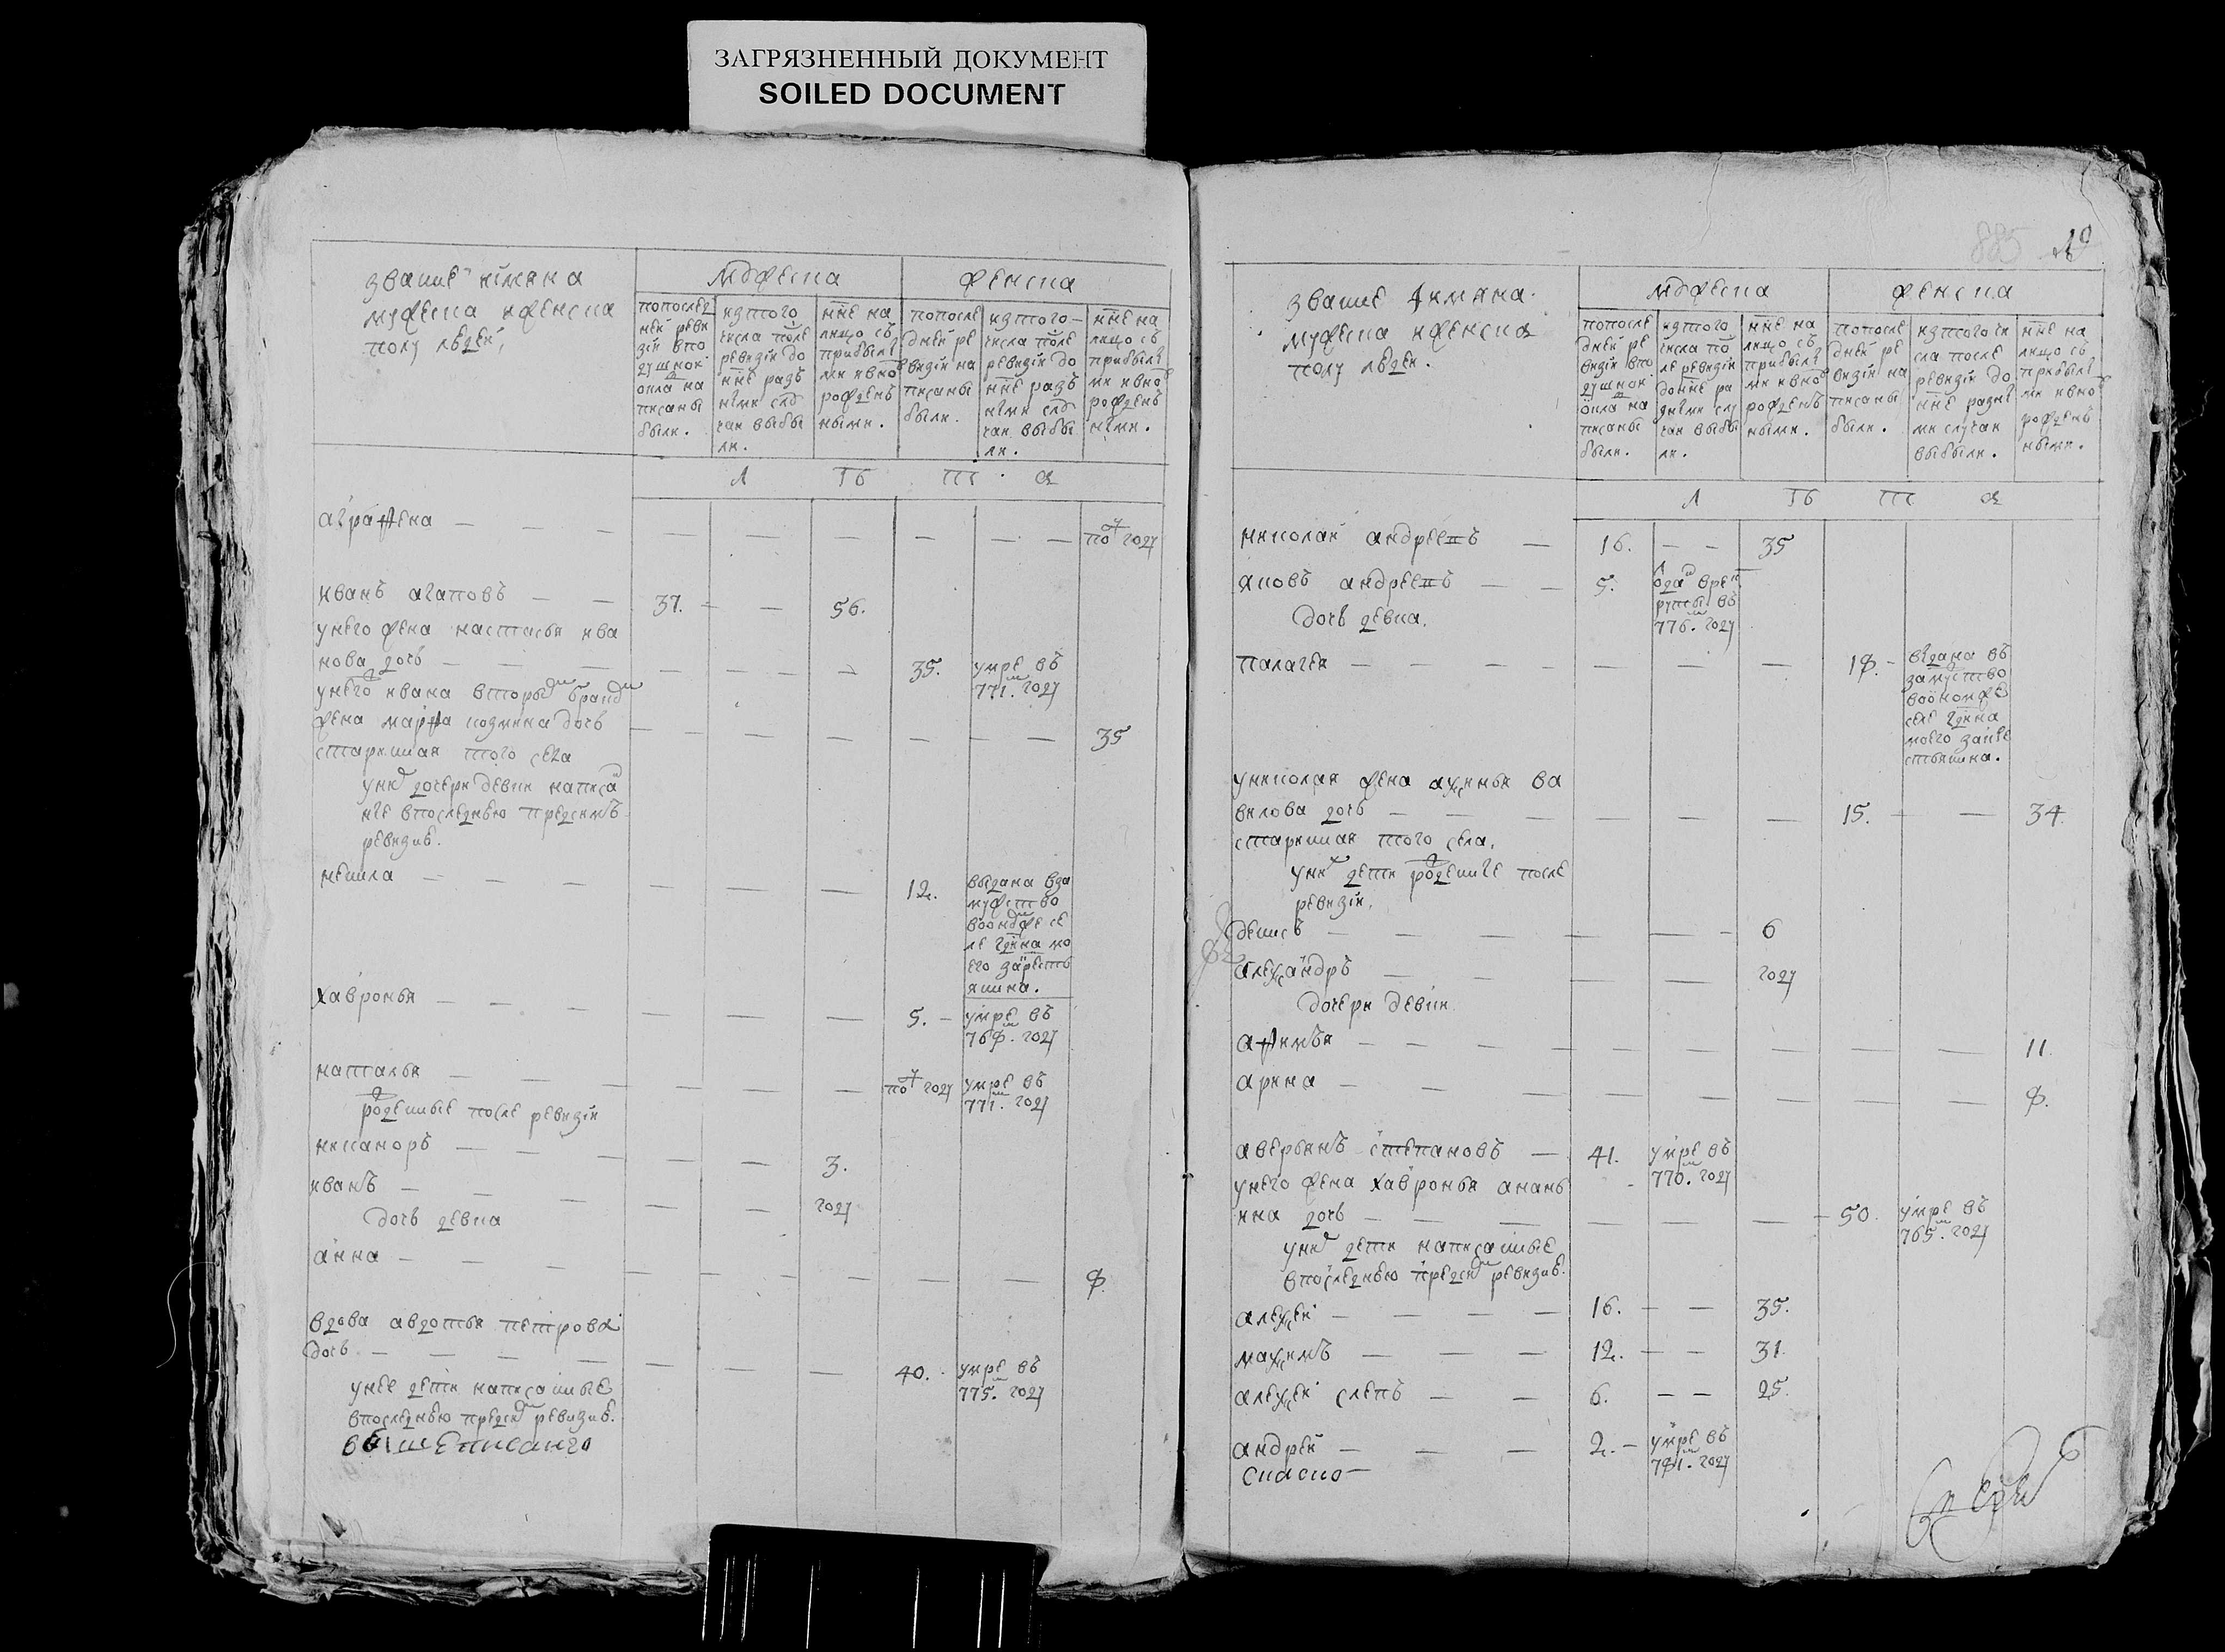 ЗАГРЯЗНЕННЫЙ ДОКУМЕНТ
SOILED DOCUMENT
звание имяна
мужеска иженска
полу людей,
мужеска
женска
попослед
ней реви
зии впо
душном
окла на
писаны
были.
изтого
числа после
ревизии до
ныне разъ
ными слу
чаи выбы
ли.
ныне на
лицо съ
прибылы
ми ивно
рожденъ
ными.
попосле
дней ре
визии на
писаны
были.
изтого
числа после
ревизии до
ныне разъ
ными слу
чаи выбы
ли.
ныне на
лицо съ
прибылы
ми ивно
рожденъ
ными.
Л Ѣ Т А
аграфена — — — — — — — — — полгоду
иванъ агаповъ — — 37. — — 56.
унего жена настасья ива
нова дочь — — — — — — 35. умре въ
771.м году
унего ивана вторым браком
жена марфа козмина дочь — — — — — — 35
старинная того села
уних дочери девки написа
ные впоследнюю предсимъ
ревизию.
ненила — — — — — — 12. выдана вза
мужство
воономже се
ле
его
хавронья — — — — — — 5. — умре въ
769.м году
наталья — — — — — — полгоду умре въ
771.м году
рожденные после ревизии
никаноръ — — — — — 3.
иванъ — — — — — году
дочь девка
анна — — — — — — — — 9.
вдова авдотья петрова
дочь — — — — — — — 40. умре въ
775.м году
унее дети написанные
впоследнюю предсим ревизию.
вышеписанго
885
звание имяна
мужеска иженска
полу людей.
мужеска
женска
попосле
дней ре
визии впо
душном
окла на
писаны
были.
изтого
числа по
ле ревизии
доныне ра
зными слу
чаи выбы
ли.
ныне на
лицо съ
прибылы
ми ивно
рожденъ
ными.
попосле
дней ре
визии на
писаны
были.
изтого чи
сла после
ревизии до
ныне разны
ми случаи
выбыли.
ныне на
лицо съ
прибылы
ми ивно
рожденъ
ными.
Л Ѣ Т А
николай андреевъ — 16. — — 35
яковъ андреевъ — — 5. отдан врек
руты въ
776.м году
дочь девка,
палагея — — — — — — — 19. — выдана въ
замуство
воономже
селе
моего
униколая жена аксинья ва
вилова дочь — — — — — — 15. — — 34.
старинная того села,
уних дети рожденные после
ревизии,
денисъ — — — — — — 6
александръ — — — — году
дочери девки
афимья — — — — — — — — — 11.
арина — — — — — — — — 9.
аверьянъ степановъ — 41. умре въ
770.м году
унего жена хавронья анань
ина дочь — — — — — — 50. умре въ
765.м году
уних дети написанные
впоследнюю предсим ревизию.
алексеи — — — — 16. — — 35.
максимъ — — — 12. — — 31.
алексеи слепъ — — 6. — — 25.
андрей — — — 2. — умре въ
781.м году
спаско—